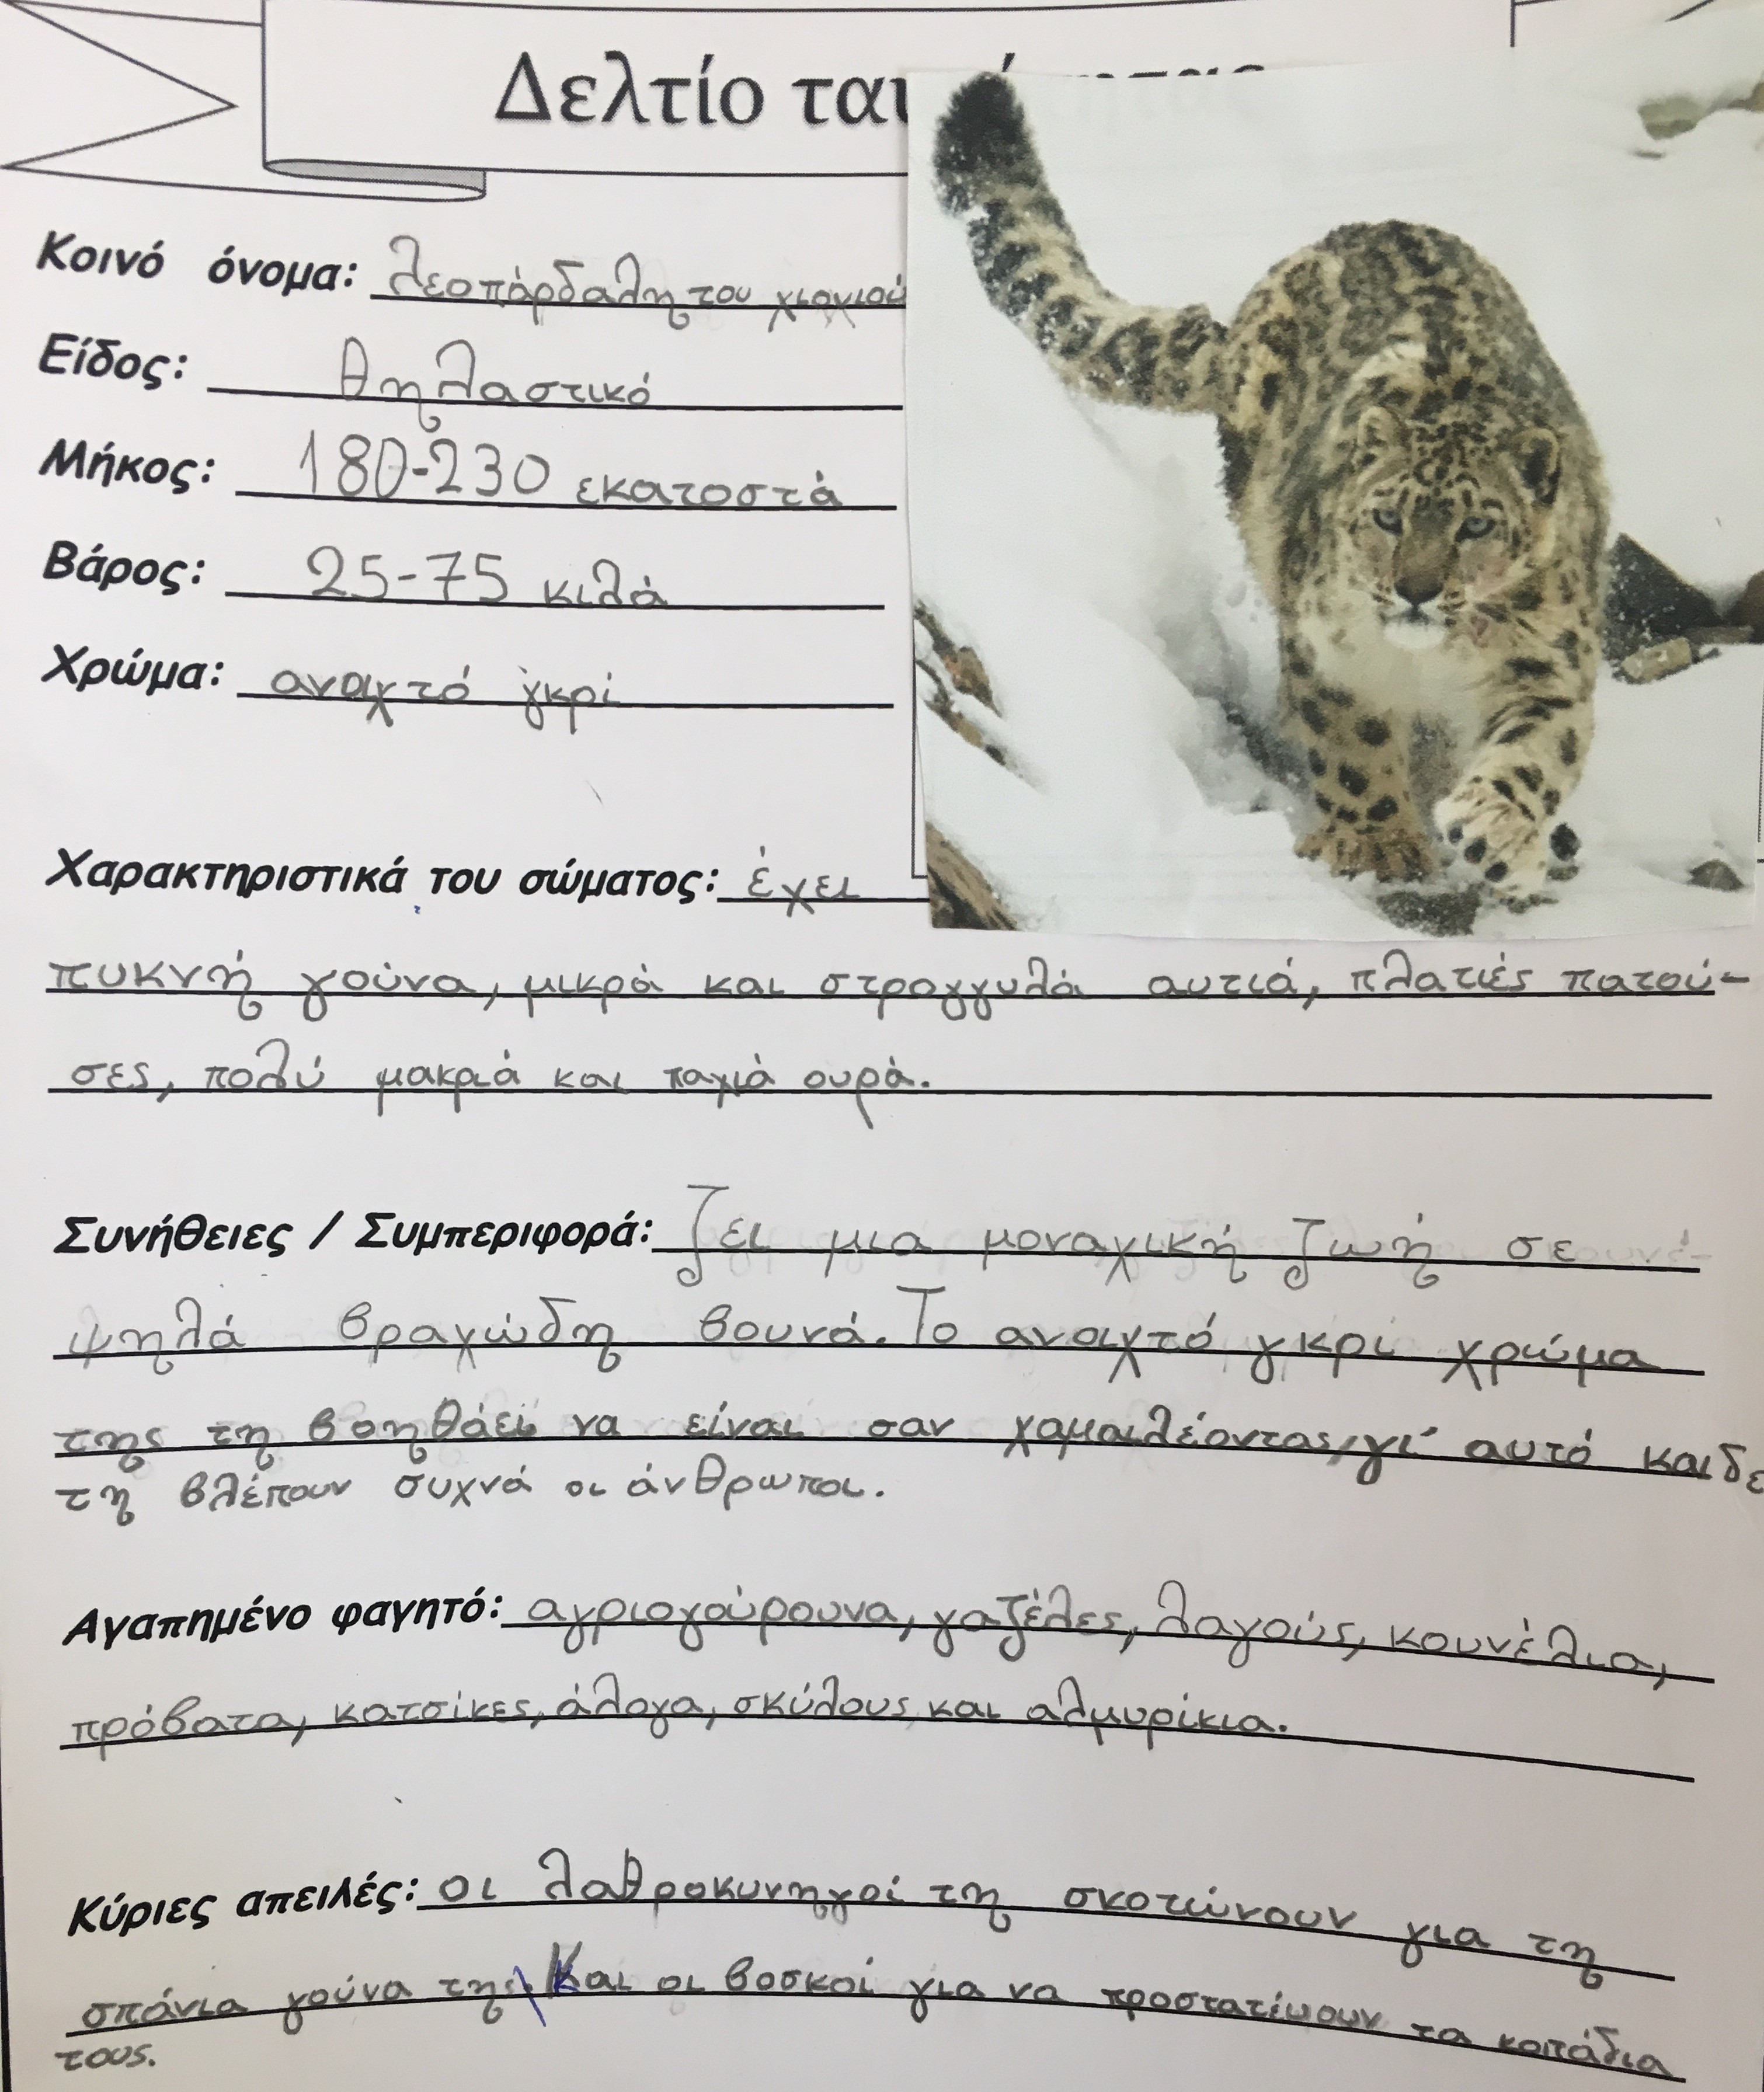 Δελτίο
Κοινό όνομα: λεοπάρδαλη του χιονιού
Είδος: θηλαστικό
Μήκος: 180-230 εκατοστά
Βάρος: 25-75 κιλά
Χρώμα: ανοιχτό γκρί
Χαρακτηριστικά του σώματος: έχει
πυκνή γούνα, μικρά και στρογγυλά αυτιά, πλατιές πατού-
σες, πολύ μακριά και παχιά ουρά.
Συνήθειες / Συμπεριφορά: ζει μια μοναχική ζωή σε
ψηλά βραχώδη βουνά. Το ανοιχτό γκρι χρώμα
της τη βοηθάει να είναι σαν χαμαιλέοντας, γι' αυτό και δε
τη βλέπουν συχνά οι άνθρωποι.
Αγαπημένο φαγητό: αγριογούρουνα, γαζέλες, λαγούς, κουνέλια,
πρόβατα, κατσίκες, άλογα, σκύλους και αλμυρίκια.
Κύριες απειλές: οι λαθροκυνηγοί τη σκοτώνουν για τη
σπάνια γούνα της. Και οι βοσκοί για να προστατέψουν τα κοπάδια
τους.